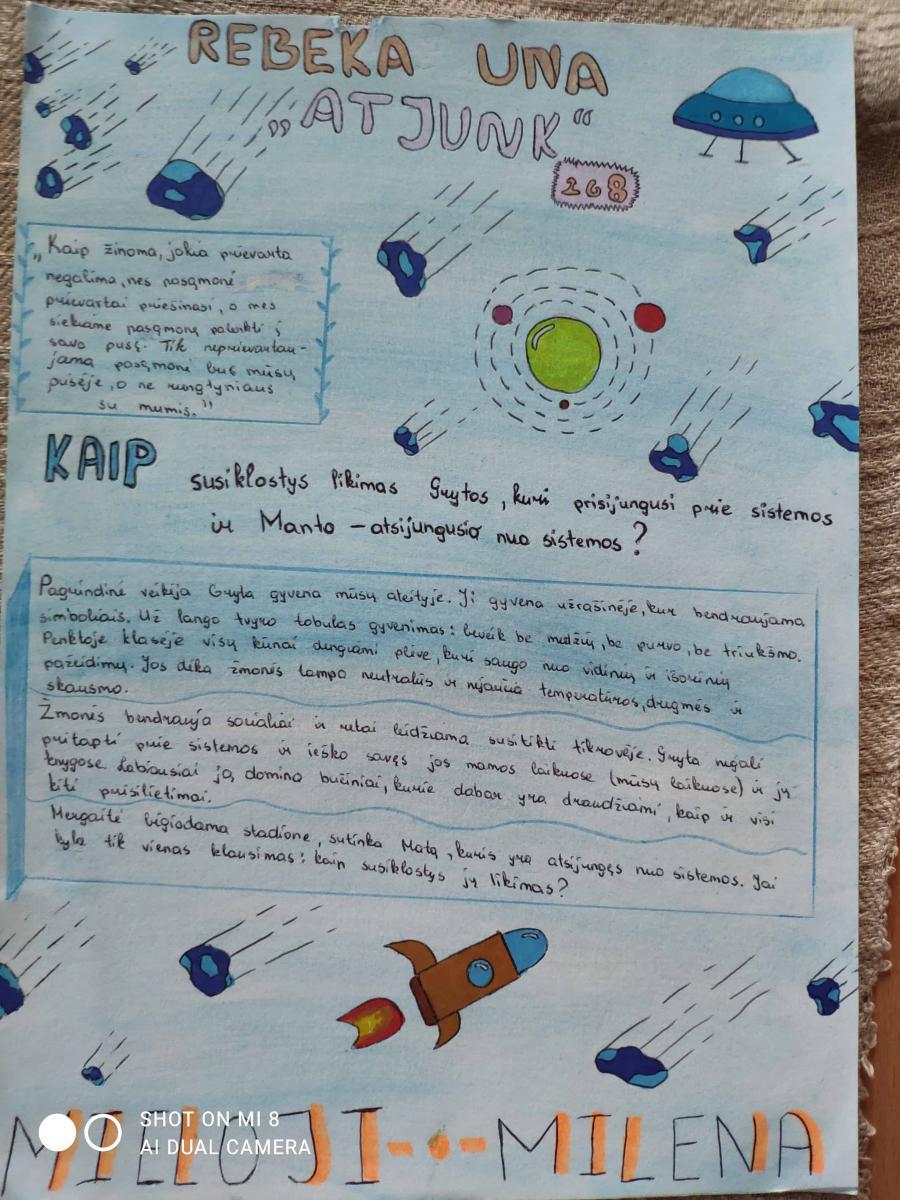 REBEKA UNA
„ATJUNK“
268
„Kaip žinoma, jokia prievarta
negalima, nes pasąmonė
prievartai priešinasi, o mes
siekiame pasąmonę palenkti į
savo pusę. Tik neprievartau-
jama pasąmonė bus mūsų
pusėje, o ne rungtyniaus
su mumis.”
KAIP susiklostys likimas Grytos, kuri prisijungusi prie sistemos
ir Manto – atsijungusio nuo sistemos?
Pagrindinė veikėja Gryta gyvena mūsų ateityje. Ji gyvena užrašinėje, kur bendraujama
simboliais. Už lango tvyro tobulas gyvenimas: beveik be medžių, be purvo, be triukšmo.
Penktoje klasėje visų kūnai dengiami plėve, kuri saugo nuo vidinių ir išorinių
pažeidimų. Jos dėka žmonės tampa neutralūs ir nejaučia temperatūros, drėgmės ir
skausmo.
Žmonės bendrauja socialiai ir retai leidžiama susitikti tikrovėje. Gryta negali
pritapti prie sistemos ir ieško savęs jos mamos laikuose (mūsų laikuose) ir jų
knygose. Labiausiai ją domina bučiniai, kurie dabar yra draudžiami, kaip ir visi
kiti prisilietimai.
Mergaitė bėgiodama stadione, sutinka Matą, kuris yra atsijungęs nuo sistemos. Jai
kyla tik vienas klausimas: kaip susiklostys jų likimas?
MILENA
SHOT ON MI 8
AI DUAL CAMERA